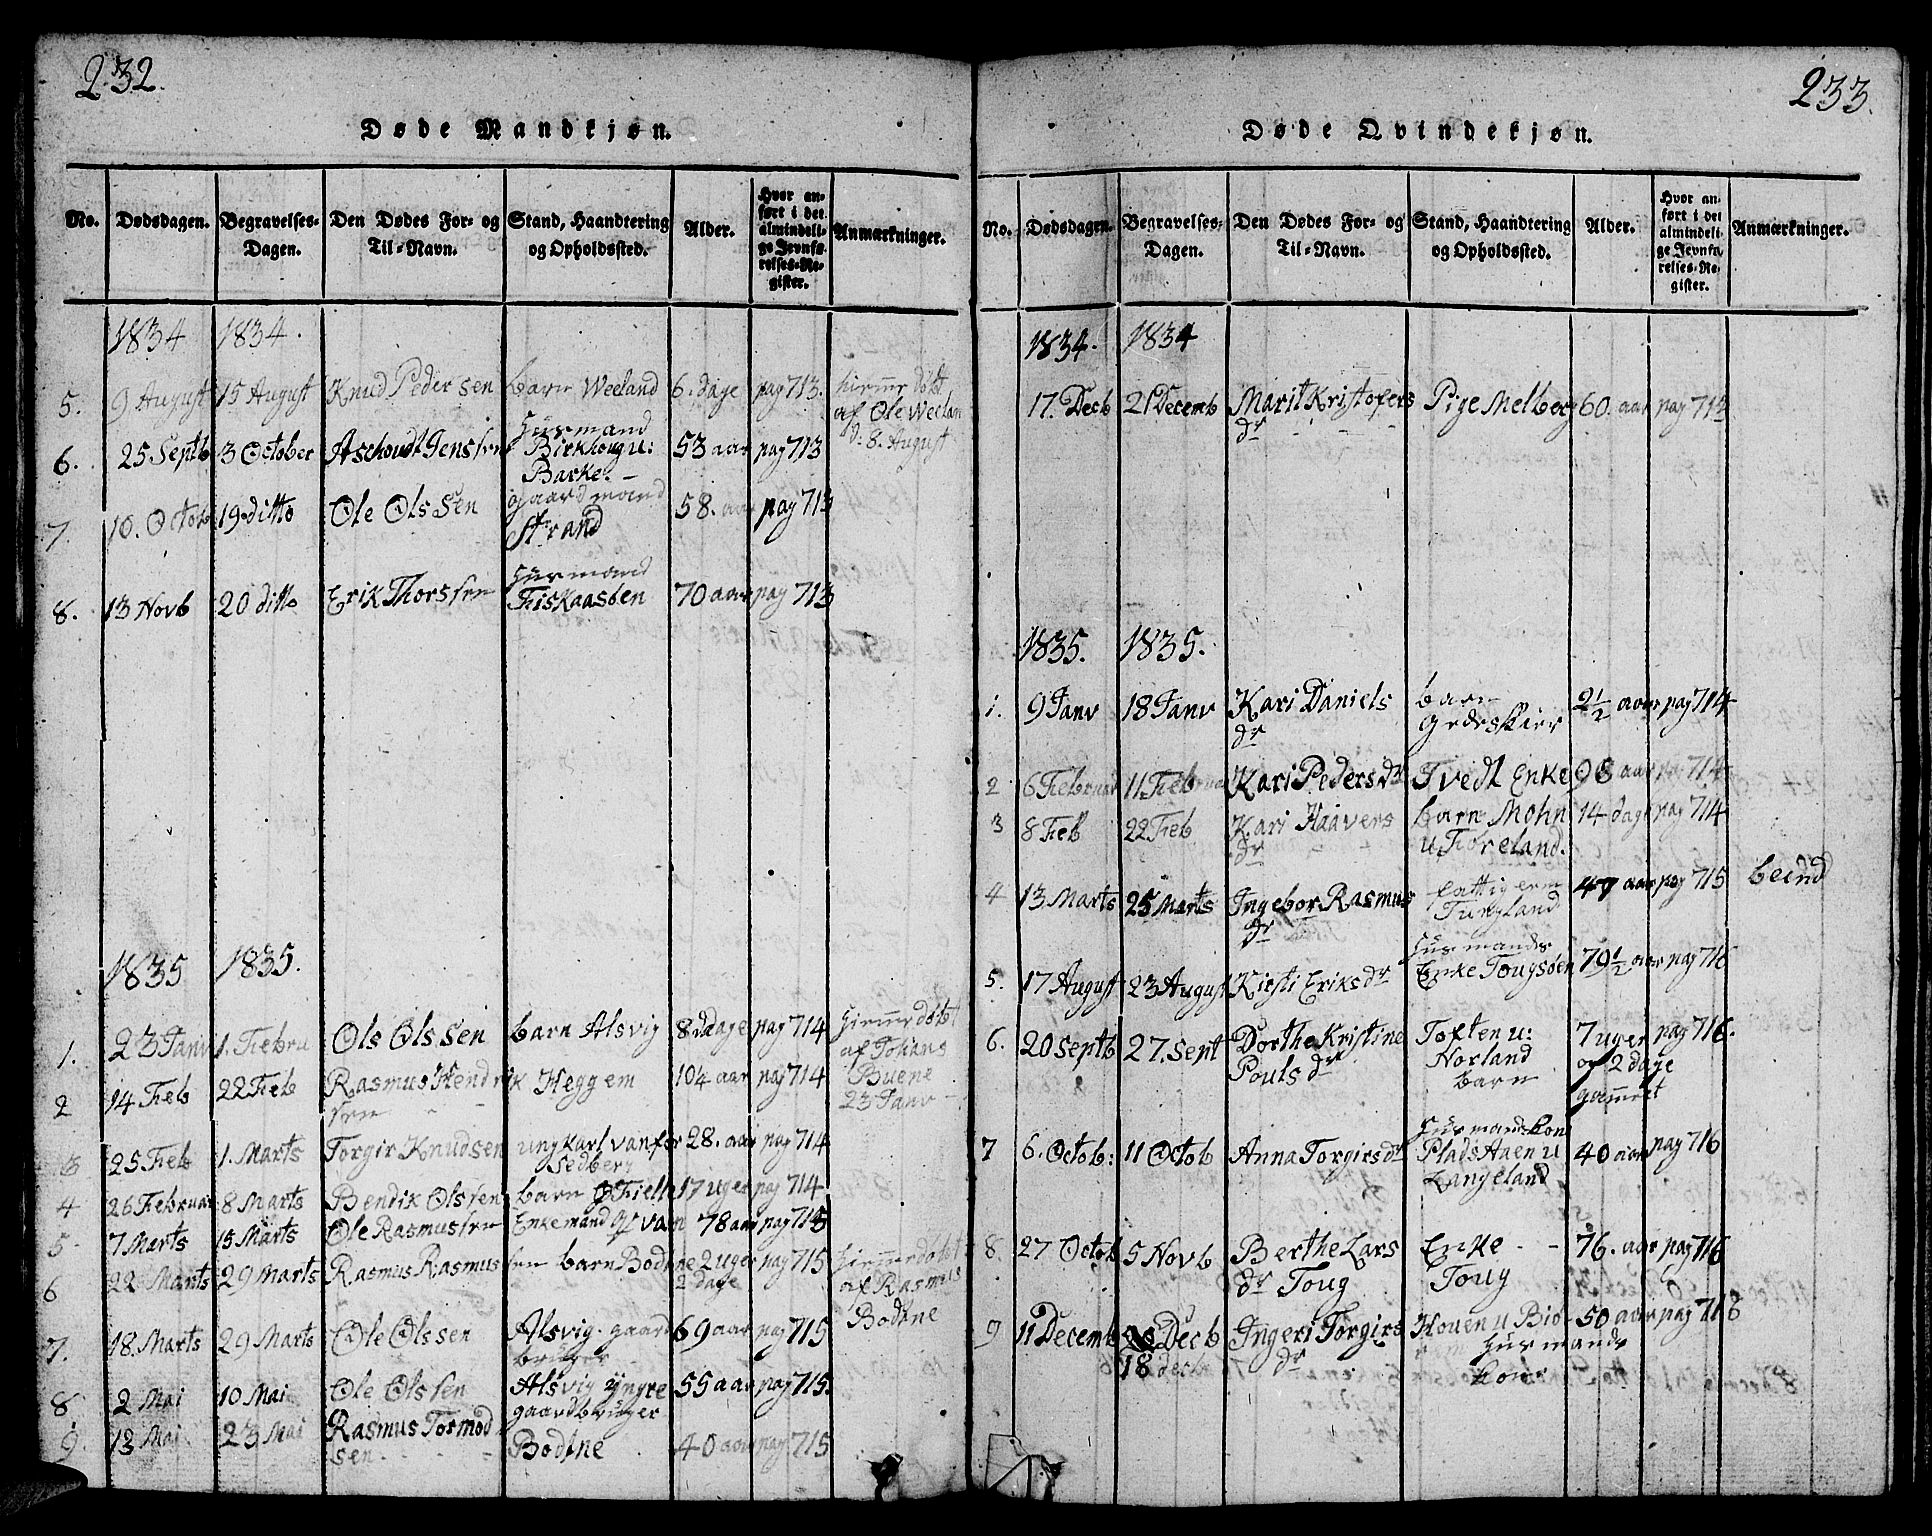 232.
Døde Mandkjøn.
No. Dødsdagen. Begravelses-Dagen. Den Dødes For- og Til-Navn. Stand, Haandtering og Opholdssted. Alder. Hvor anført i det almindelige Jevnførelses-Register. Anmærkninger.
1834 1834.
5. 9 August 15 August Knud Pedersen barn Weeland 6. dage pag 713. hiemme døbt
af Ole Weelan
d: 8. August
Husmand
6. 25 Septb 3 October Aschoudt Jenssen Birkhoug u: 53 aar pag 713
Barke. -
gaardmand
7. 10. Octob 19. ditto Ole Olssen Strand 58. aar pag 713
Husmand
8. 13 Novb 20 ditto Erik Thorssen Fiskaasøen 70 aar pag 713
1835 1835.
1. 23 Janv 1. Febru Ols Olssen barn Alsvig 8 dage pag 714 hiemmedøbt
af Johans
Buene
23 Janv -
2 14 Feb 22 Feb Rasmus Hendrik Heggem 104 aar pag 714
sen - -
3 25 Feb 1. Marts Torgir Knudsen ungkarl vanfør 28. aar pag 714
Sedberg
4 26 Februar 8 Marts Bendik Olssen barn Fielle 17 uger pag 714
5 7 Marts 15 Marts Ole Rasmussen Enkemand 78 aar pag 715
6 22 Marts 29 Marts Rasmus Rasmussen barn Bodøne 2 uger pag 715 hiemmedøbt
2 dage
af Rasmus
Bodøne
7. 18. Marts 29 Marts Ole Olssen Alsvig. gaard 69 aar pag 715
bruger
8 2 Mai 10 Mai Ole Olssen Alsvig yngre 55 aar pag 715.
gaardbruger
9. 13 Mai 23 Mai Rasmus Tormod Bodøne 40 aar pag 715
sen - -
233.
Døde Qvindekjøn.
No. Dødsdagen. Begravelses-Dagen. Den Dødes For- og Til-Navn. Stand, Haandtering og Opholdssted. Alder. Hvor anført i det almindelige Jevnførelses-Register. Anmærkninger.
1834. 1834
17. Decb 21 Decemb Marit Kristofers Pige Melberg 60. aar pag 713
dr - - -
1835. 1835.
1. 9 Janv 18 Janv Kari Daniels barn 2½ aar pag 714
dr Gredeskier
2 6 Februar 11 Februar Kari Peders dr Tvedt Enke 98 aar pag 714
3 8 Feb 22 Feb Kari Haavers barn Mohn 14 dage pag 714
dr - u. Føreland.
4 13 Marts 25 Marts Ingebor Rasmus fattig 47 aar pag 715 beind
dr Tungland
Husmands
5. 17 August 23 August Kirsti Eriks dr Enke Tougsøen 79½ aar pag 716
6. 20 Septb 27. Sept Dorthe Kristine Toften u: 7 uger pag 716.
Pouls dr Norland og 2 dage
barn gammelt
Husmandskone
7 6. Octob: 11 Octob Anna Torgirs dr Plads Aaen u 40 aar pag 716
Langeland
8. 27 Octob 5 Novb Berthe Lars Enke - - 76. aar pag 716
dr Toug Toug
9 11 Decemb Decb Ingeri Torgirs Houen u Bio- 50 aar pag 716
18 decb dr Husmands
kone